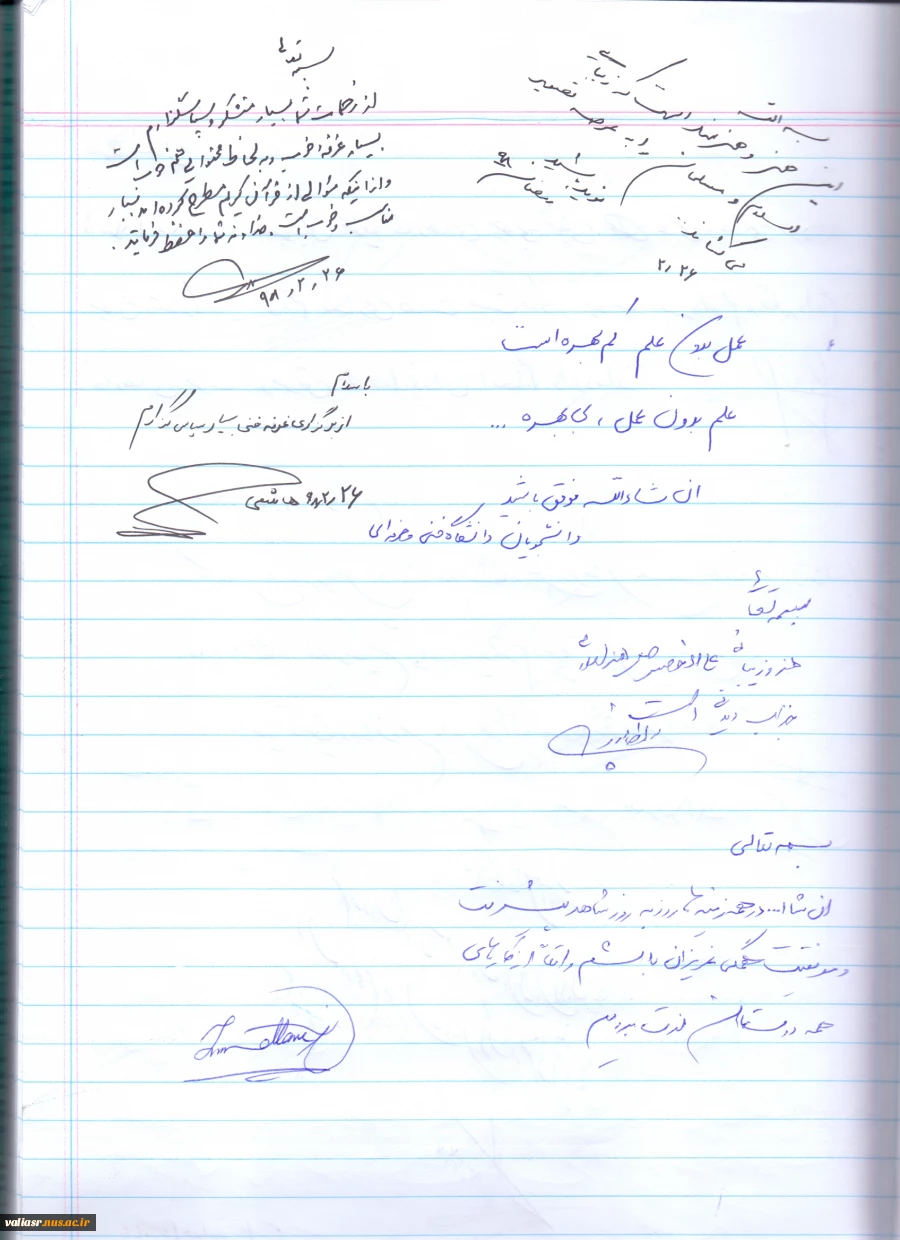 بسمه تعالی
از زحمات شما بسیار متشکر و سپاسگزارم
بسیار غرفه خوب و به لحاظ محتوایی هم خوب است
و از اینکه سؤالی از قرآن کریم مطرح کرده اند بسیار
مناسب و خوب است. خداوند شما را حفظ فرماید.
۹۸٫۲٫۲۶
بسم الله
هنر و هنرمند است که زیبایی
را به عرصه تصویر
می کشاند
۲٫۲۶
عمل بدون علم کم بهره است
علم بدون عمل ، بی بهره ...
ان شاءالله موفق باشید
دانشجویان دانشگاه فنی و حرفه ای
با سلام
از برگزاری غرفه فنی بسیار سپاس گزارم
۹۸٫۲٫۲۶ هاشمی
بسمه تعالی
هنر و زیبائی علی الخصوص هنر اسلامی
جذاب دیدنی است
بسمه تعالی
ان شاا... در همه زمینه ها روز به روز شاهد پیشرفت
و موفقیت همگی عزیزان باشیم واقعاً از کارهای
همه دوستان لذت بردیم
valiasr.nus.ac.ir